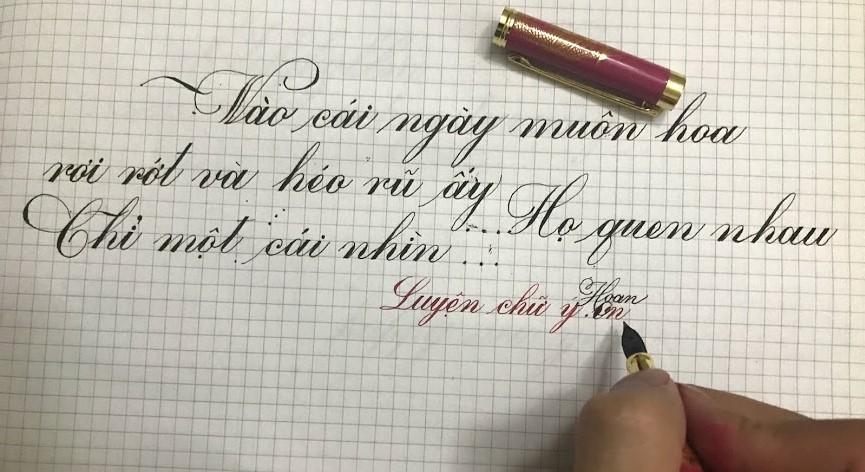 Vào cái ngày muôn hoa
rơi rớt và héo rũ ấy
... Họ quen nhau
Chỉ một cái nhìn ...
Luyện chữ ý .vn
Hoan